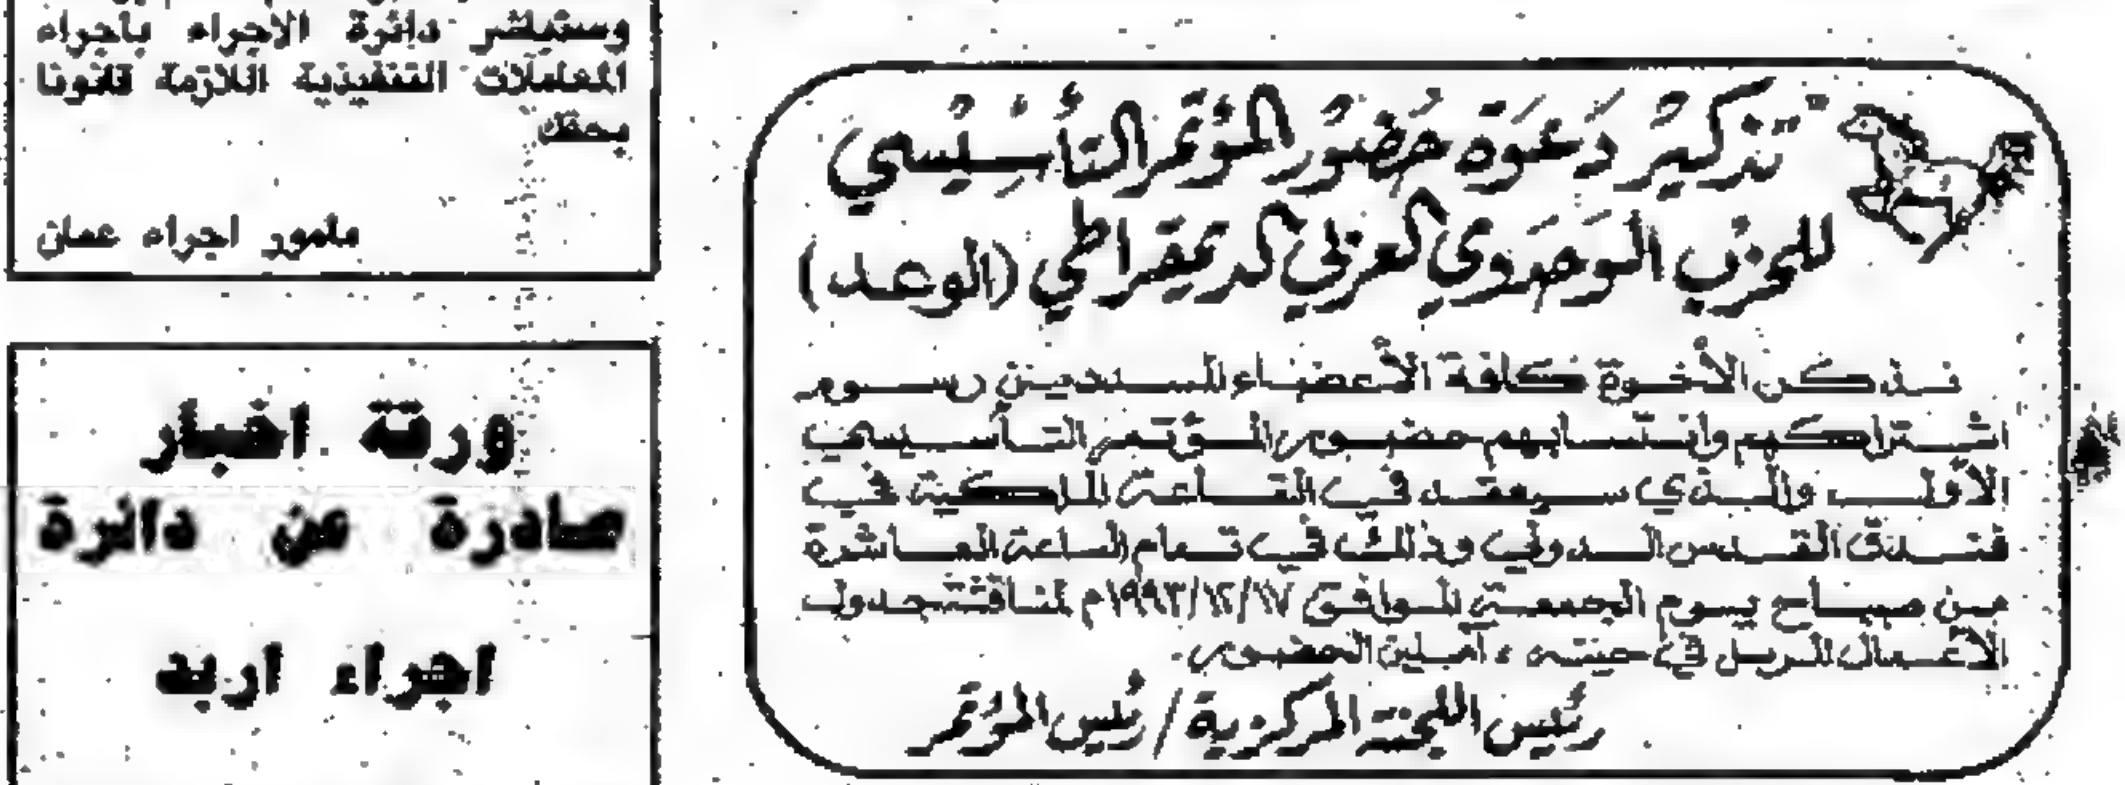 تذكير دعوة حضور المؤتمر التأسيسي
للحزب الوحدوي العربي الديمقراطي (الوعد)
نذكر الأخوة كافة الأعضاء المسددين رسوم
اشتراكهم وانتسابهم حضور المؤتمر التأسيسي
الأول والذي سيعقد في القاعة الملكية في
فندق القدس الدولي وذلك في تمام الساعة العاشرة
من صباح يوم الجمعة الموافق ١٩٩٣/١٢/١٧م لمناقشة جدول
الأعمال المرسل في حينه ، آملين الحضور.
رئيس اللجنة المركزية / رئيس المؤتمر
وستباشر دائرة الأجراء بأجراء
المعاملات التنفيذية اللازمة قانونا
بحقك
مأمور اجراء عمان
ورقة اخبار
صادرة عن دائرة
اجراء اربد